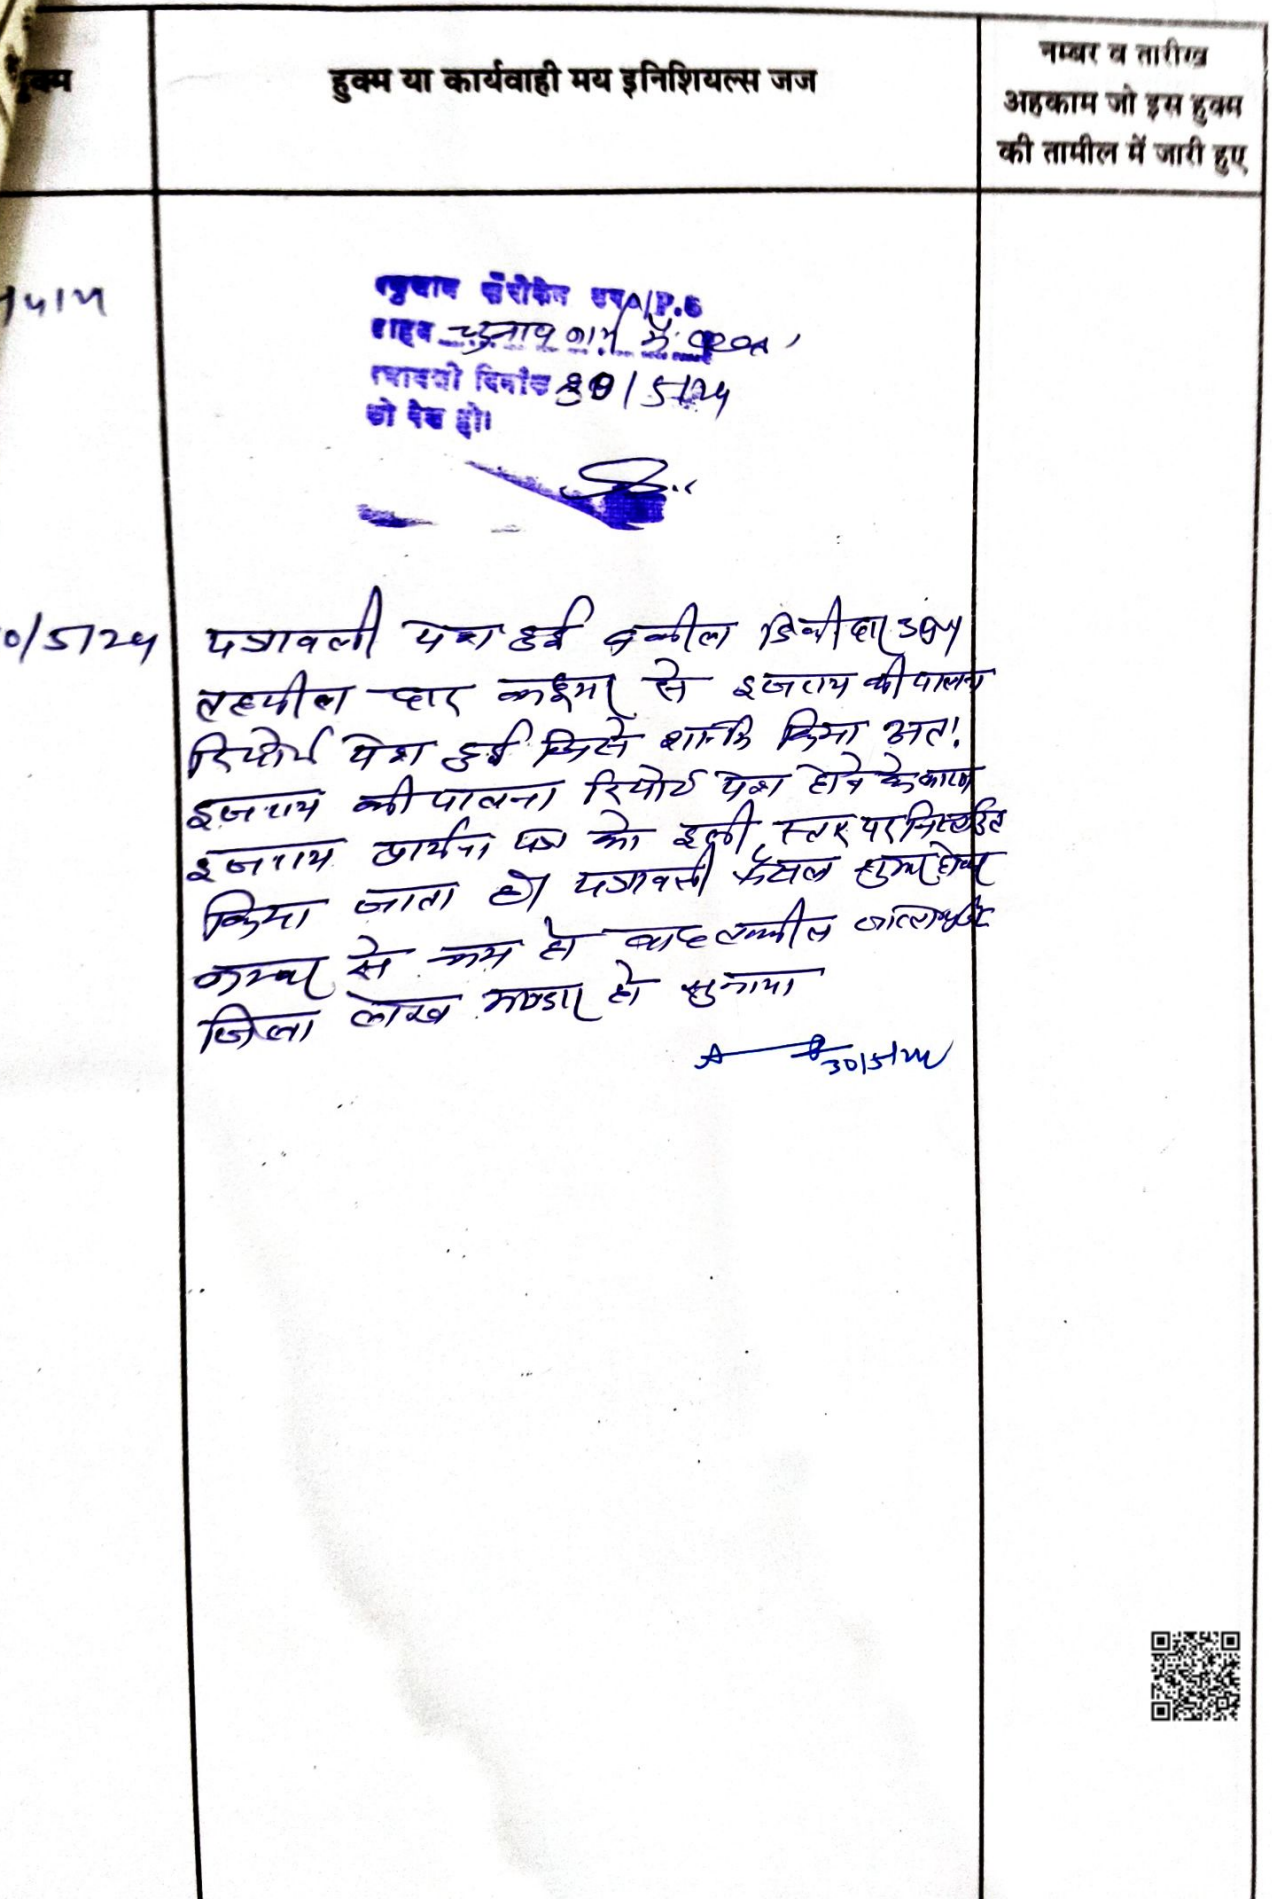 हुक्म
हुक्म या कार्यवाही मय इनिशियल्स जज
नम्बर व तारीख
अहकाम जो इस हुक्म
की तामील में जारी हुए
A/P.S
चुनाव कार्य में व्यस्त
दिनांक 30/5/24
को पेश हो।
0/5/24 पत्रावली पेश हुई वकील डिक्रीदार उप०
तहसीलदार से इजराय की पालना
रिपोर्ट पेश हुई जिसे शामिल किया अतः
इजराय की पालना रिपोर्ट पेश होने के कारण
इजराय प्रार्थना पत्र को इसी स्तर पर निस्तारित
किया जाता है। पत्रावली फैसल शुमार होकर
नम्बर से कम हो बाद तकमील
जिला लेख भण्डार हो सुनाया
30/5/24